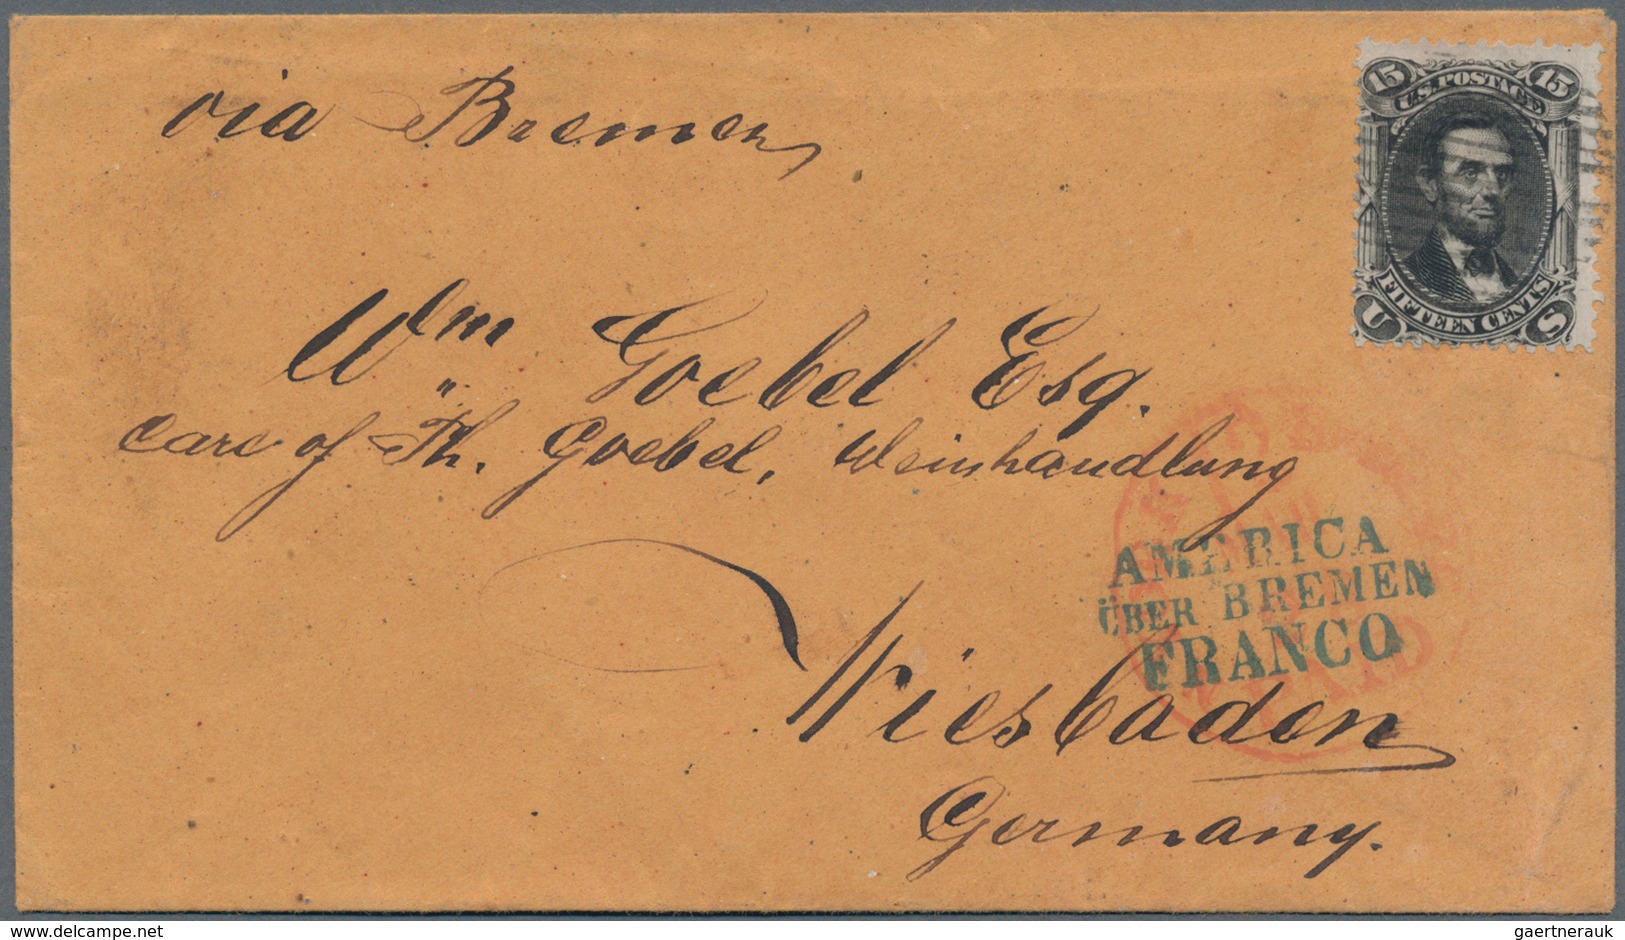 via Bremen
15 U.S. POSTAGE 15
FIFTEEN CENTS
U S
Wm Goebel Esq.
care of Th. Goebel, Weinhandlung
AMERICA
ÜBER BREMEN
FRANCO
Wiesbaden
Germany.
delcampe.net
gaertnerauk